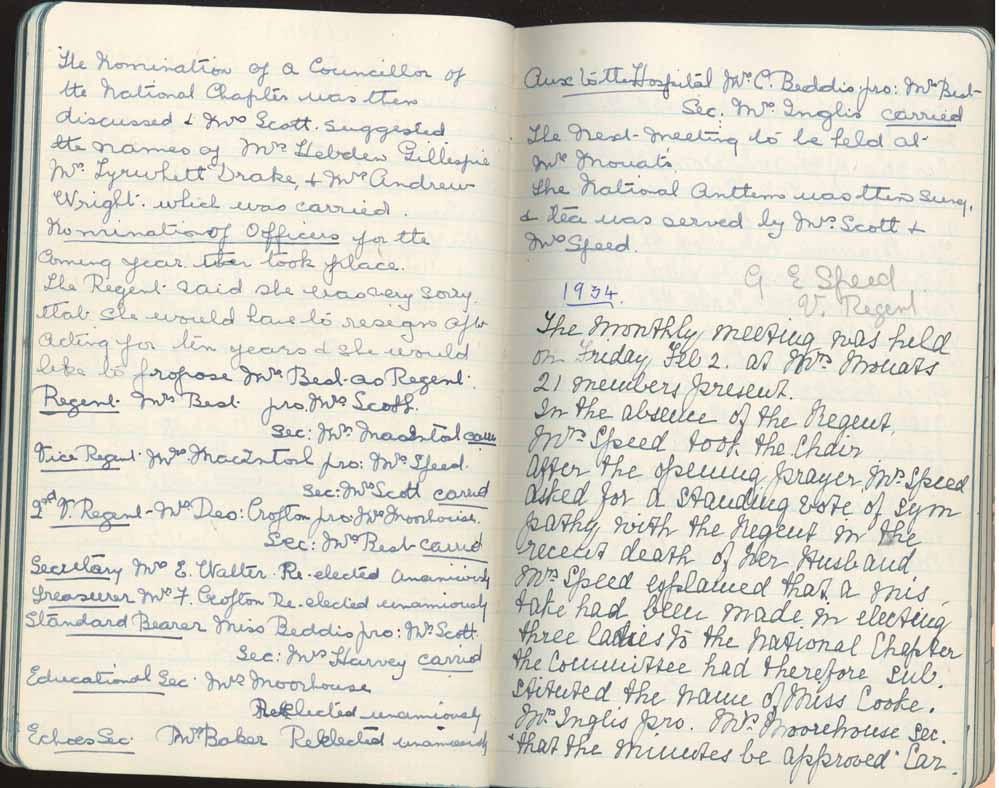 The Nomination of a Councillor of
the National Chapter was then
discussed & Mrs Scott. suggested
the names of Mrs Hebden Gillespie
Mrs Tyrwhitt Drake, & Mrs Andrew
Wright. which was carried.
Nomination of Officers for the
Coming year then took place.
The Regent said she was very sorry.
that she would have to resign after
acting for ten years & she would
like to propose Mrs Best as Regent.
Regent. Mrs Best pro. Mrs Scott.
Sec: Mrs MacIntosh carrid
Vice Regent. Mrs MacIntosh pro: Mrs Speed.
Sec: Mrs Scott carrid
2nd V. Regent - Mrs Deo: Crofton pro: Mrs Moorhouse.
Sec: Mrs Best carrid
Secretary Mrs E. Walter. Re-elected unamiously
Treasurer Mrs F. Crofton Re.elected unamiously
Standard Bearer Miss Beddis pro: Mrs Scott.
Sec: Mrs Harvey carrid
Educational Sec. Mrs Moorhouse
Reelected unamiously
Echoes Sec. Mrs Baker Reelected unamiously
Aux to the Hospital Mrs C. Beddis pro: Mrs Best-
Sec. Mrs Inglis carried
The next meeting to be held at
Mrs Mouats.
The National Anthem was then sung,
& tea was served by Mrs Scott &
Mrs Speed.
G E Speed
V. Regent
1934.
The Monthly meeting was held
on Friday Feb 2. at Mrs Mouats
21 members present.
In the absence of the Regent,
Mrs Speed took the Chair
After the opening prayer, Mrs Speed
asked for a standing vote of sym
pathy with the Regent in the
recent death of her Husband
Mrs Speed explained that a mis,
take had been made in electing
three ladies to the National Chapter
the Committee had therefore sub.
stituted the name of Miss Cooke.
Mrs Inglis pro. Mrs Moorehouse sec.
"that the minutes be approved" Car.